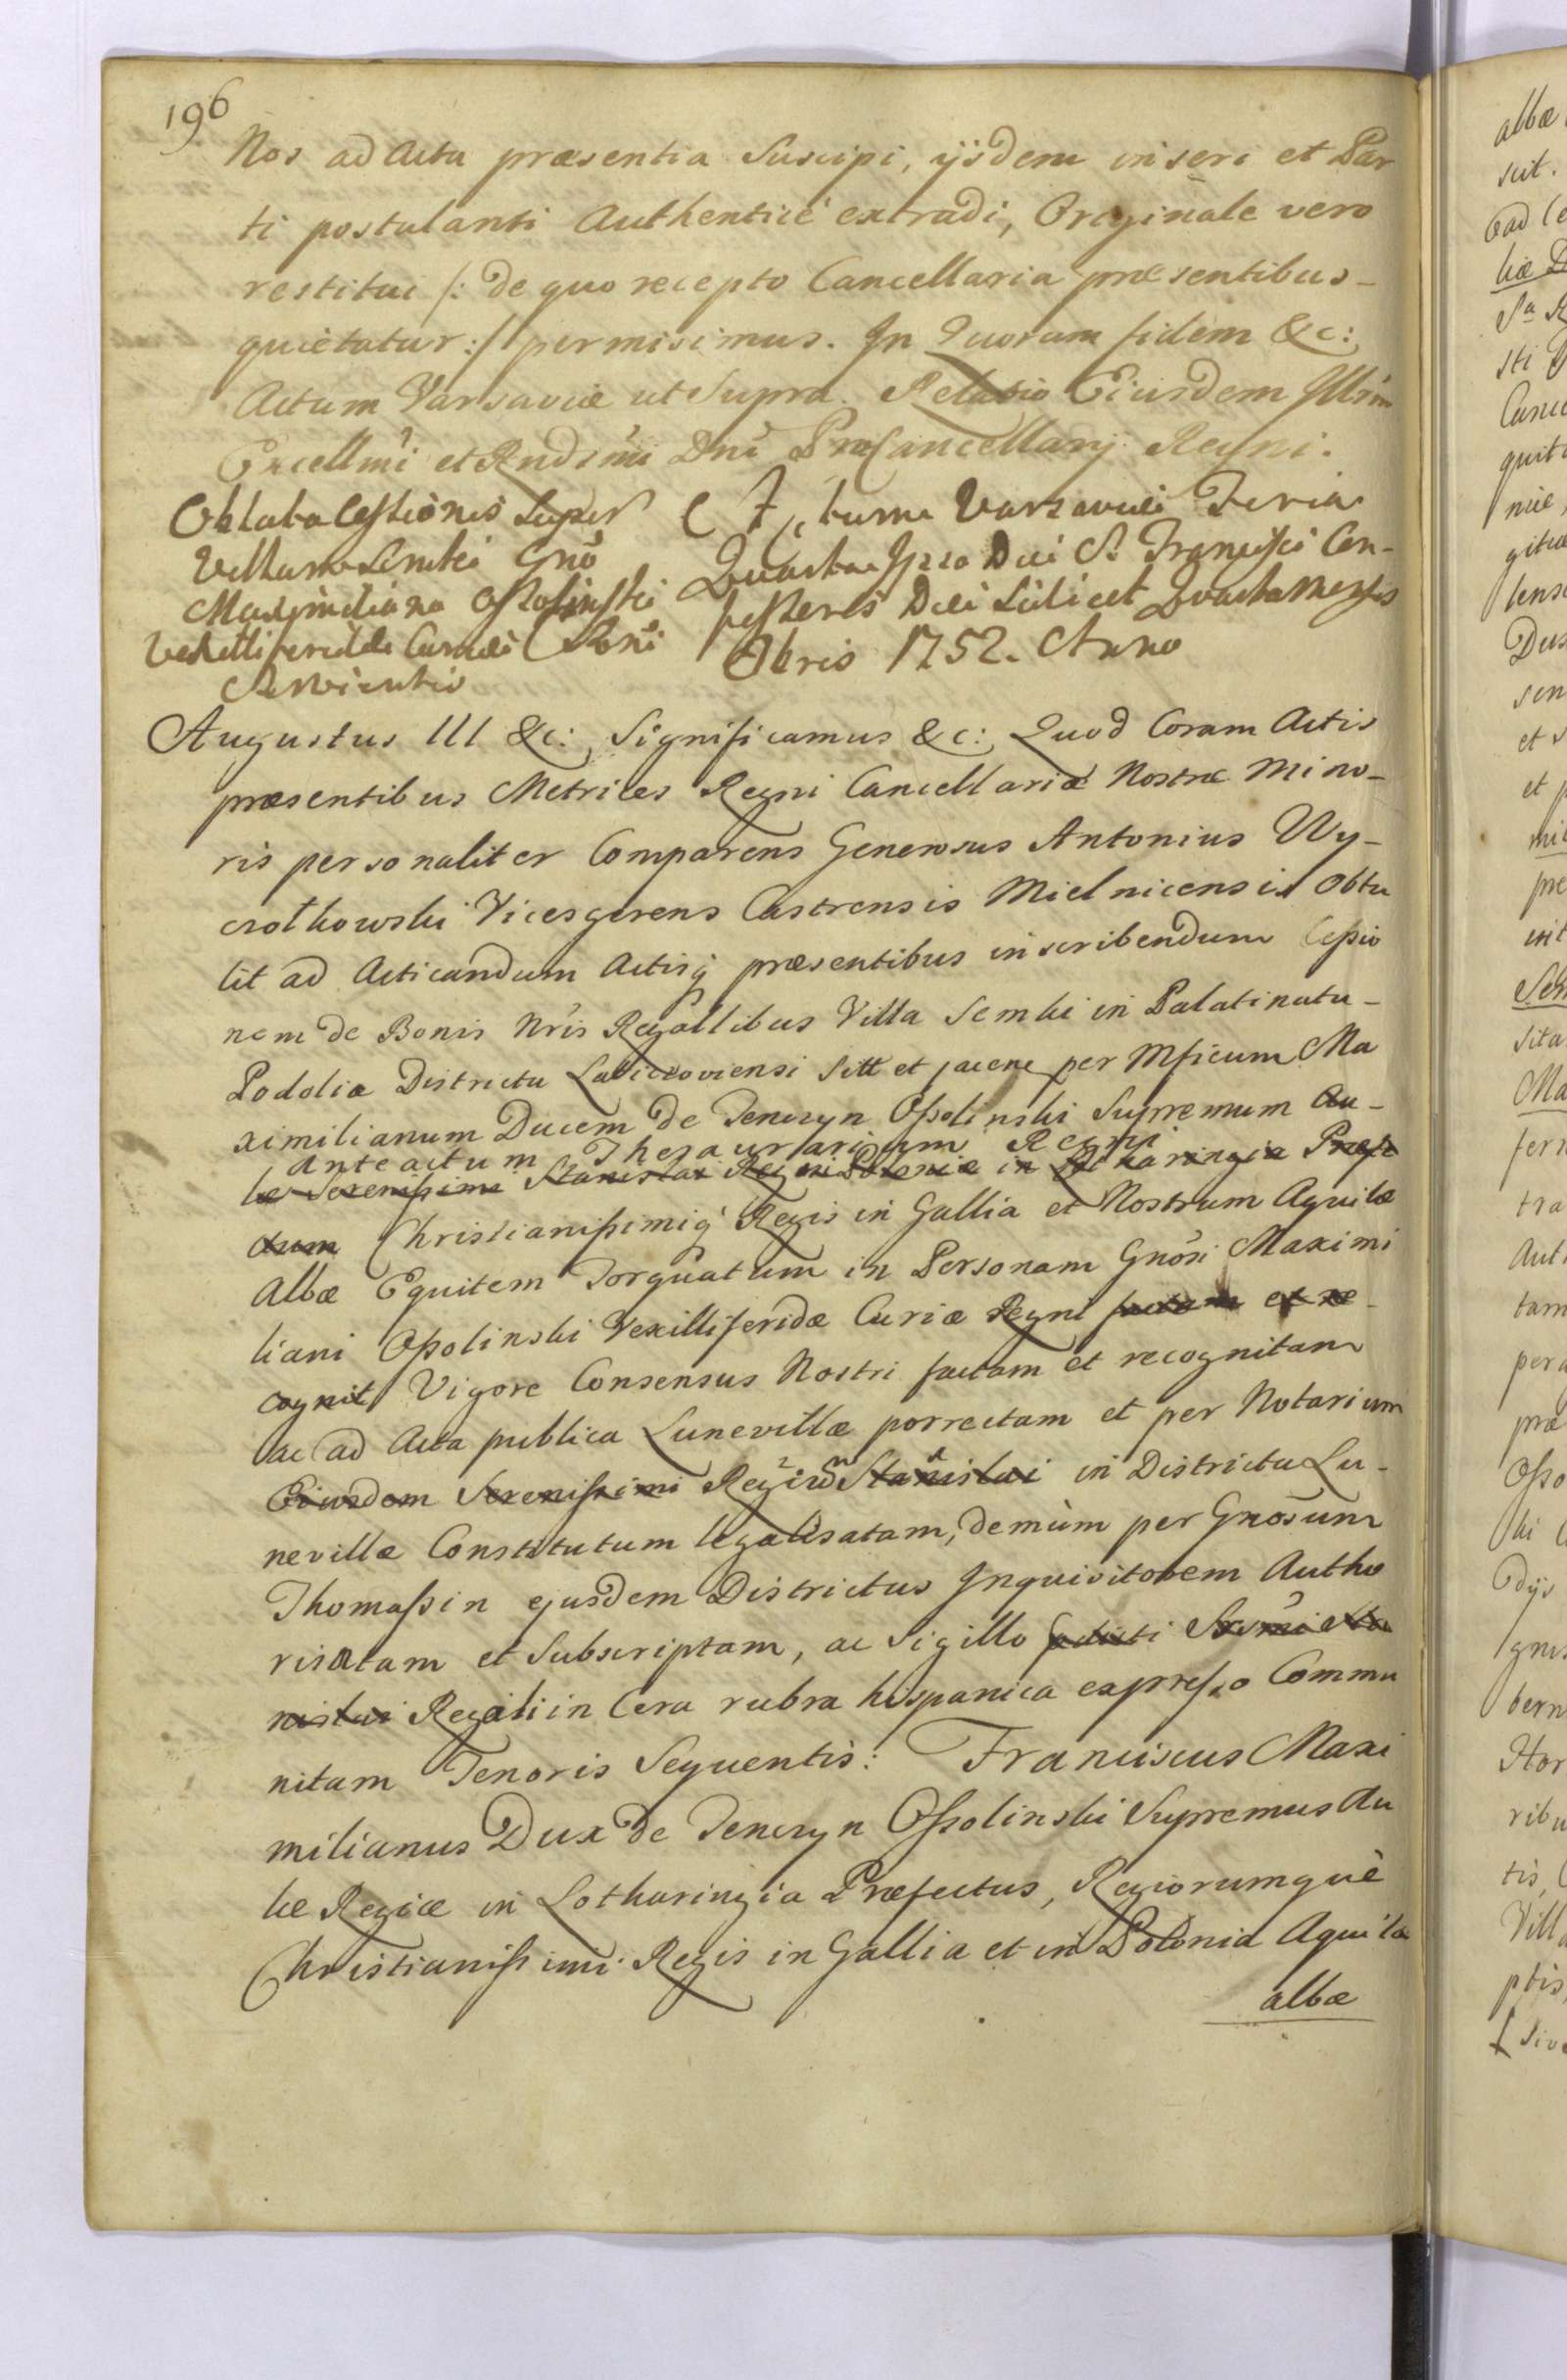 196
Nos ad Acta præsentia Suscipi, ijsdem inseri et Par
ti postulanti Authenticè extradi, Originale vero
restitui /: de quo recepto Cancellaria præsentibus-
quietatur :/ permisimus. In Quorum fidem &c:
Actum Varsaviæ ut Supra. Relatio Eiusdem Illrm̄i
Excellm̄i et Rndsm̄i Dn̄i ProCancellarij Regni.
Oblata Cessionis super
Villam Semki Gn̄o
Maximiliano Ossolinski
Vexilliferidæ Curiæ Rn̄i
Servientis
Actum Varsaviæ Feria
Quarta Ipso Die S. Francisci Con-
fessoris Die Scilicet Quarta Mensis
Obris 1752. Anno
Augustus III &c: Significamus &c: Quod Coram Actis
præsentibus Metrices Regni Cancellariæ Nostræ Mino-
ris personaliter Comparens Generosus Antonius Wy-
czołkowski Vicesgerens Castrensis Mielnicensis Obtu
lit ad Acticandum Actisq̨ præsentibus inscribendum Cessio
nem de Bonis Nr̄is Regalibus Villa Semki in Palatinatu-
Podoliæ Districtu Laticzoviensi Sitt et jacen per Mficum Ma
ximilianum Ducem de Tenczyn Ossolinski Supremum Au-
Anteactum Thesaurarium Regni
læ Serenissimi Stanislai Regis Poloniæ in Lotharingia Præfe
ctum Christianissimiq̨ Regis in Gallia et Nostrum Aquilæ
Albæ Equitem Torquatum in Personam Gnōsi Maximi
liani Ossolinski Vexilliferidæ Curiæ Regni factam et re-
cognit Vigore Consensus Nostri factam et recognitam
ac ad Acta publica Lunevillæ porrectam et per Notarium
Eiusdem Serenissimi Regium Stanislai in Districtu Lu-
nevillæ Constitutum legalisatam, demùm per Gnōsum
Thomassin ejusdem Districtus Inquisitorem Autho
risatam et Subscriptam, ac Sigillo pdicti Srn̄i Sta
nislai Regali in Cera rubra hispanica expresso Commu
nitam Tenoris Sequentis: Franciscus Maxi
milianus Dux de Tenczyn Ossolinski Supremus Au
læ Regiæ in Lotharingia Præfectus, Regiorumquè
Christianissimi Regis in Gallia et in Polonia Aquilæ
albæ